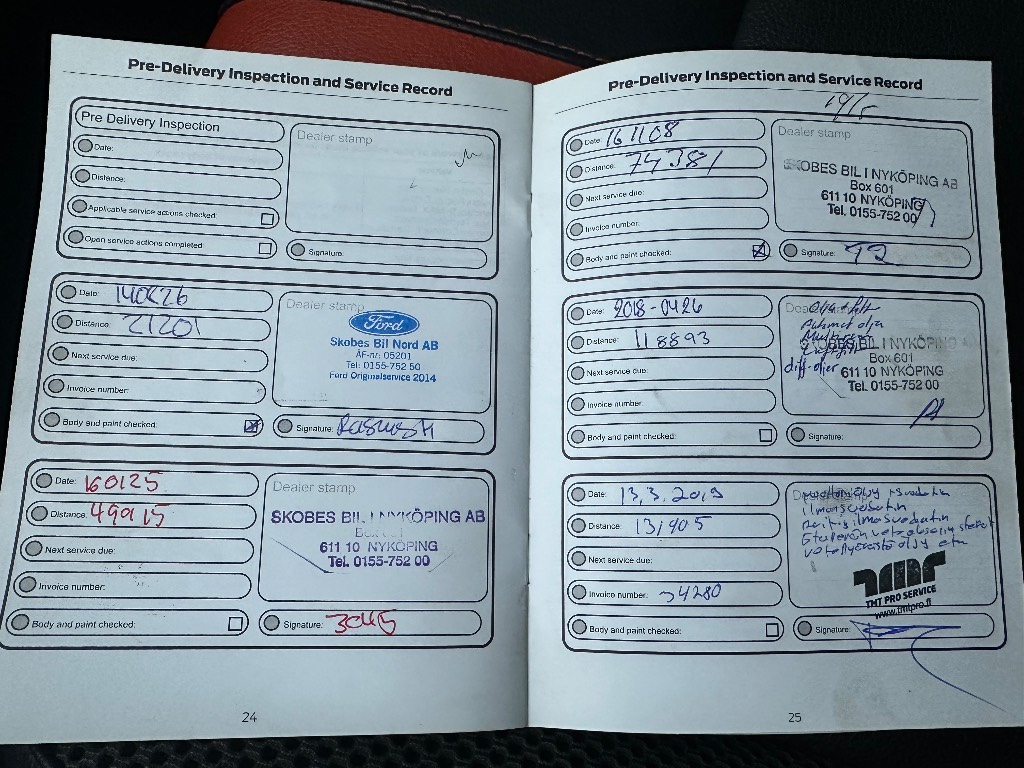 Pre-Delivery Inspection and Service Record
Pre Delivery Inspection
Date:
Distance:
Applicable service actions checked:
Open service actions completed:
Dealer stamp
Signature:
Date:
Distance: 21201
Next service due:
Invoice number:
Body and paint checked:
Dealer stamp
Ford
Skobes Bil Nord AB
ÅF-nr: 05201
Tel: 0155-752 50
Ford Originalservice 2014
Signature:
Date: 160125
Distance: 49915
Next service due:
Invoice number:
Body and paint checked:
Dealer stamp
SKOBES BIL I NYKÖPING AB
Box 601
611 10 NYKÖPING
Tel. 0155-752 00
Signature:
24
Pre-Delivery Inspection and Service Record
Date: 161108
Distance: 74381
Next service due:
Invoice number:
Body and paint checked:
Dealer stamp
SKOBES BIL I NYKÖPING AB
Box 601
611 10 NYKÖPING
Tel. 0155-752 00
Signature: 92
Date: 2018-0426
Distance: 118893
Next service due:
Invoice number:
Body and paint checked:
SKOBES BIL I NYKÖPING
Box 601
diff-oljer
611 10 NYKÖPING
Tel. 0155-752 00
Signature:
Date: 13,3,2019
Distance: 131905
Next service due:
Invoice number: 34280
Body and paint checked:
ilmansuodatin
TMT PRO SERVICE
www.tmtpro.fi
Signature:
25